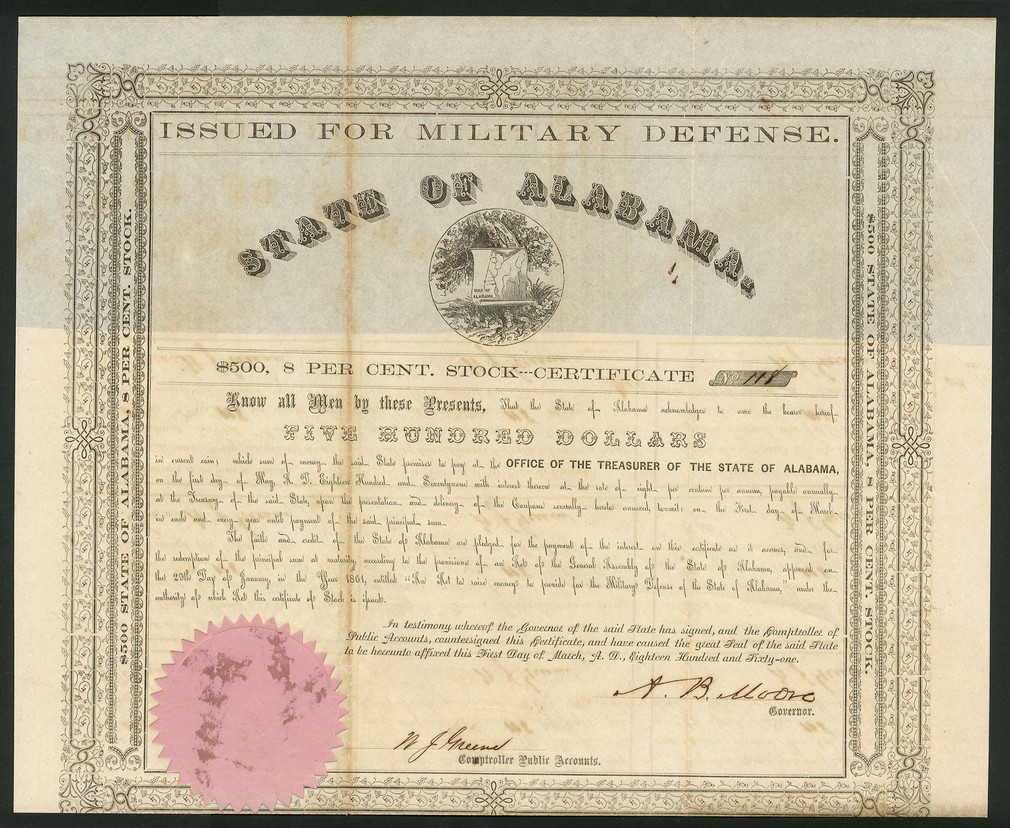 ISSUED FOR MILITARY DEFENSE.
STATE OF ALABAMA,
MAP OF
ALABAMA
$500, 8 PER CENT. STOCK---CERTIFICATE No 118
Know all Men by these Presents, That the State of Alabama acknowledges to owe the bearer hereof
FIVE HUNDRED DOLLARS
in current coin; which sum of money the said State promises to pay at the OFFICE OF THE TREASURER OF THE STATE OF ALABAMA,
on the first day of May, A. D. Eighteen Hundred and Seventynine with interest thereon at the rate of eight per centum per annum, payable annually
at the Treasury of the said State, upon the presentation and delivery of the Coupons severally hereto annexed, to-wit: on the First day of March
in each and every year until payment of the said principal sum.
The faith and credit of the State of Alabama are pledged for the payment of the interest on this certificate as it accrues, and for
the redemption of the principal sum at maturity, according to the provisions of an Act of the General Assembly of the State of Alabama, approved on
the 29th Day of January, in the Year 1861, entitled "An Act to raise money to provide for the Military Defense of the State of Alabama," under the
authority of which Act this certificate of Stock is issued.
In testimony whereof the Governor of the said State has signed, and the Comptroller of
Public Accounts, countersigned this Certificate, and have caused the great Seal of the said State
to be hereunto affixed this First Day of March, A. D., Eighteen Hundred and Sixty-one.
A. B. Moore
Governor.
W J Greene
Comptroller Public Accounts.
$500 STATE OF ALABAMA, 8 PER CENT. STOCK.
$500 STATE OF ALABAMA, 8 PER CENT. STOCK.